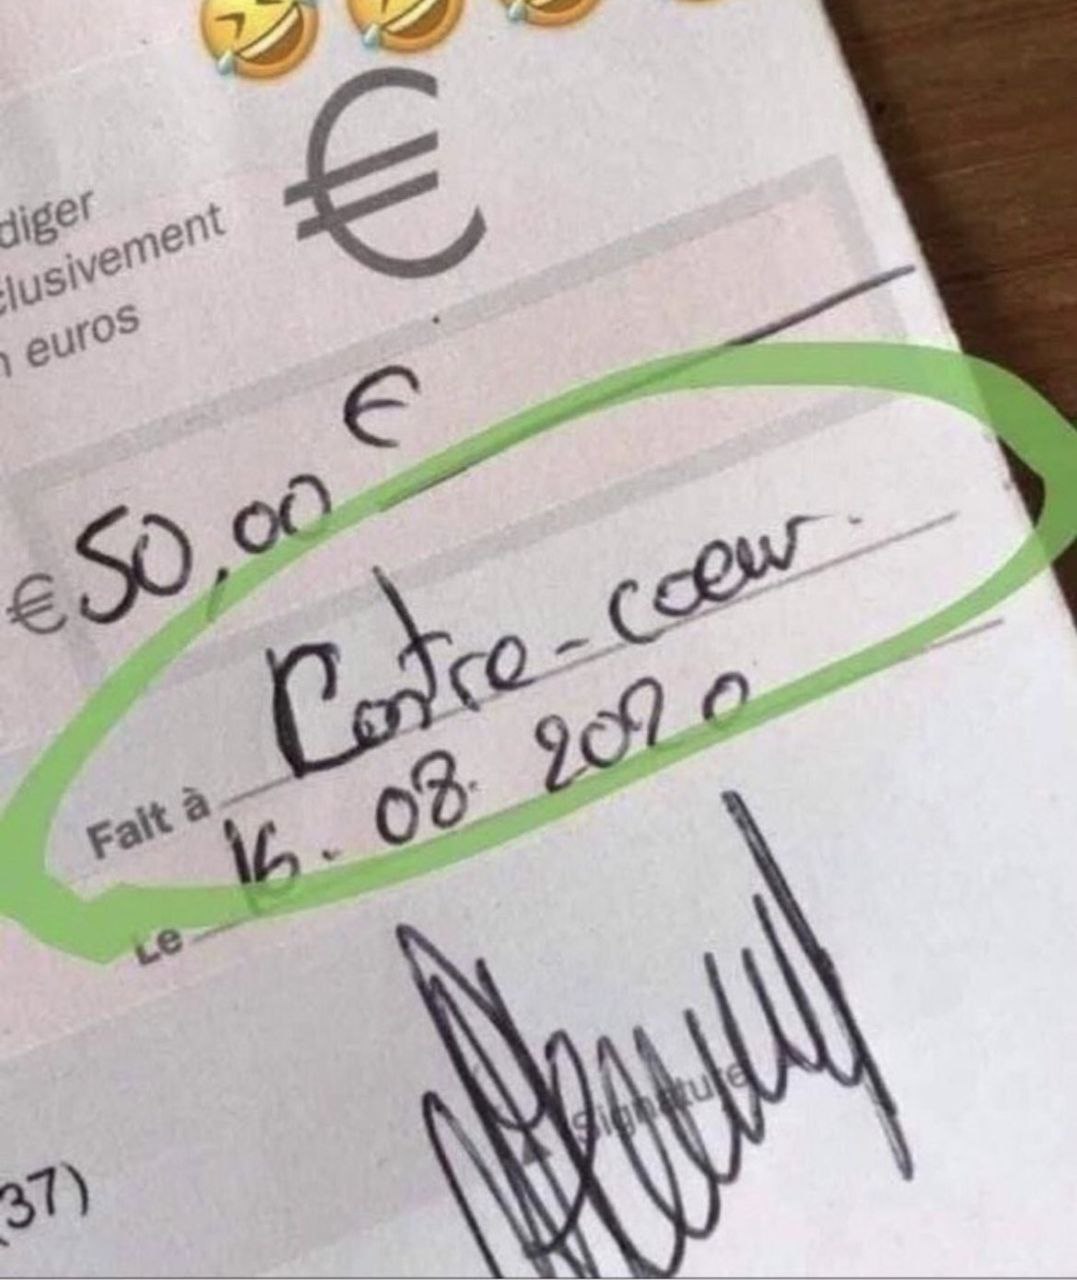 €
diger
clusivement
n euros
€ 50,00 €
Fait à Contre-coeur.
Le 16.08.2020
Signature
(37)